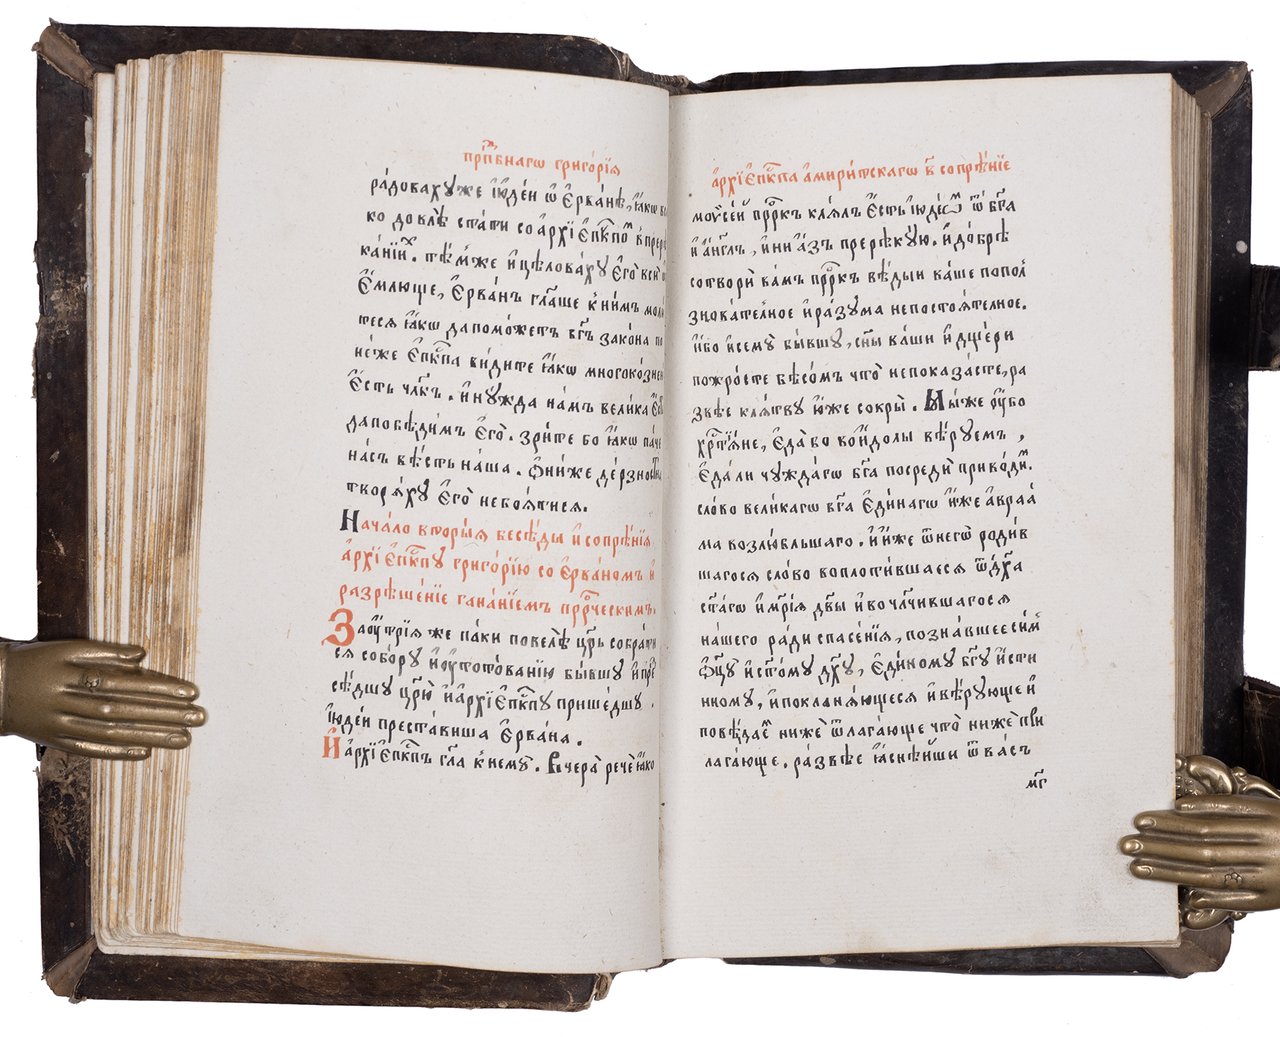 прпⷣбнагѡ григо́рїѧ
ра́довахꙋже і҆ꙋде́и ѡ҆ є҆рва́нѣ, ꙗ҆́кѡ
ко довлѣ̀ ста́ти со а҆рхїе҆пⷭ҇кпоⷨ в̾ прер
ка́нїиⷯ. тѣ́мже и҆ цѣлова́хꙋ є҆го̀ всѝ
є҆́млюще, є҆рва́нъ гл҃аше к̾ ни́мъ моли́
тесѧ ꙗ҆́кѡ да помо́жетъ бг҃ъ зако́на по
не́же є҆пⷭ҇кпа ви́дите ꙗ҆́кѡ многоко́знен
є҆́сть чл҃къ. и҆ нꙋ́жда на́мъ вели́ка
да побѣди́мъ є҆го̀. зри́те бо ꙗ҆́кѡ па́че
на́съ вѣ́сть на́ша. ѻ҆ни́же де́рзнос
творѧ́хꙋ є҆го̀ небоѧ́тисѧ.
Нача́ло вторы́ѧ бесѣ́ды и҆ сопрѣ́нїѧ
а҆рхїе҆пⷭ҇кпꙋ григо́рїю со є҆рва́номъ и҆
разрѣше́нїе гана́нїемъ прⷪ҇ро́ческимъ.
Заꙋ҆́трїѧ же па́ки повелѣ̀ цр҃ь собра́ти
сѧ собо́рꙋ и҆ ᲂу҆гото́ванїю бы́вшꙋ и҆ пре
сѣ́дшꙋ цр҃ю̀ и҆ а҆рхїе҆пⷭ҇кпꙋ прише́дшꙋ.
і҆ꙋде́и преста́виша є҆рва́на.
И҆ а҆рхїе҆пⷭ҇кпъ гл҃а к̾ немꙋ̀. Вчера̀ речѐ ꙗ҆́ко
а҆рхїе҆пⷭ҇кпа а҆мири́тскагѡ в̾ сопрѣ́нїе
моѷсе́й прⷪ҇ркъ клѧ́лъ є҆́сть і҆ꙋде́ѡⷨ ѿ бг҃а
и҆ а҆́нг҃лъ, и҆ нѝ а҆́зъ прерѣкꙋ́ю. и҆ до́брѣ
сотворѝ ва́мъ прⷪ҇ркъ вѣ́дыи ва́ше попол
знова́телное и҆ ра́зꙋма непостоѧ́телное.
и҆́бо и҆ семꙋ̀ бы́вшꙋ, сн҃ы ва́ши и҆ дще́ри
пожро́сте бѣсо́мъ что̀ непоказа́сте, ра
звѣ̀ клѧ́твꙋ ю҆́же сокры̀. Мы́же ᲂу҆́бо
хрⷭ҇тїѧ́не, є҆да̀ во и҆́долы вѣ́рꙋемъ,
є҆да́ли чꙋжда́гѡ бг҃а посредѝ приво́диⷨ.
сло́во вели́кагѡ бг҃а є҆ди́нагѡ и҆́же авраа́
ма возлю́вльшаго. и҆ и҆́же ѿ него̀ роди́в
шагосѧ сло́во воплоти́вшаесѧ ѿ дх҃а
ст҃а́гѡ и҆ мр҃і́ѧ дв҃ы и҆ вочл҃чившагосѧ
на́шего ра́ди спасе́нїѧ, позна́вшеесиⷨ
ѻ҆ц҃ꙋ̀ и҆ ст҃о́мꙋ дх҃ꙋ, є҆ди́номꙋ бг҃ꙋ и҆́сти
нномꙋ, и҆ покланѧ́ющесѧ и҆ вѣ́рꙋюще и҆
повѣ́даеⷨ нижѐ ѿлага́юще что̀ нижѐ при
лага́юще. ра́звѣе ꙗ҆снѣ́йши ѿ ва́съ
мг҃